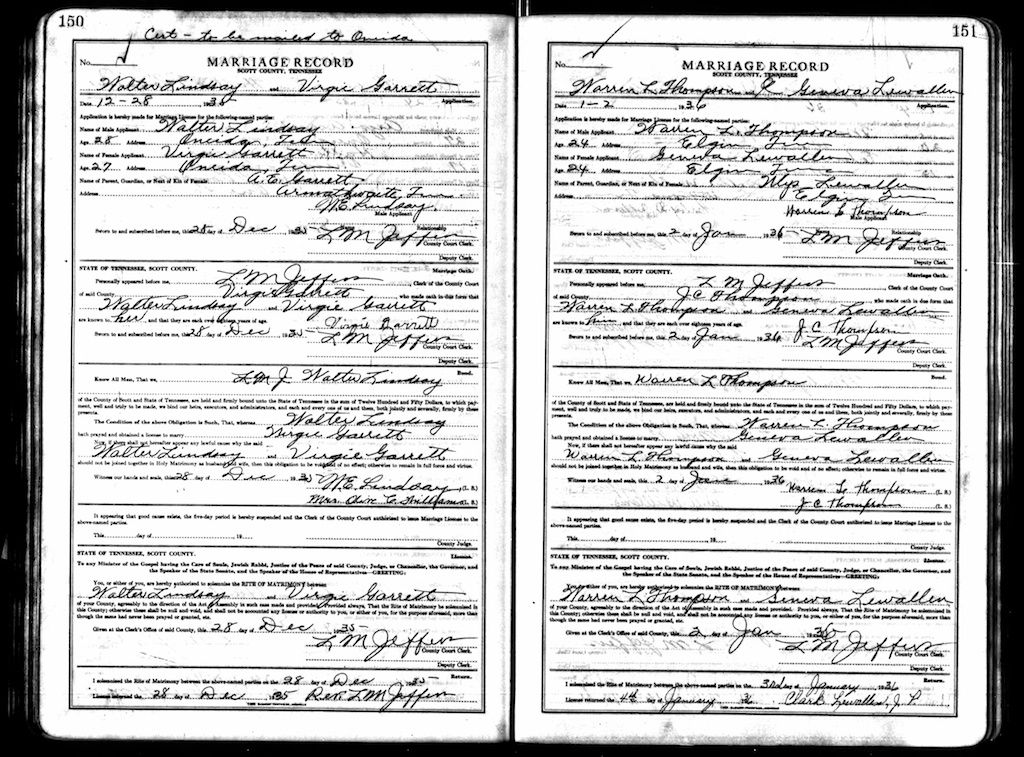 150
Cert - to be mailed to Oneida
No.
MARRIAGE RECORD
SCOTT COUNTY, TENNESSEE
Walter Lindsay and Virgie Garrett
Date 12-28 193 Application.
Application is hereby made for Marriage License for the following-named parties:
Name of Male Applicant Walter Lindsay
Age 28 Address Oneida, Tenn
Name of Female Applicant Virgie Garrett
Age 27 Address Oneida, Tenn
Name of Parent, Guardian, or Next of Kin of Female A.C. Garrett
Address Tenn
W.E. Lindsay
Male Applicant
Relationship
Sworn to and subscribed before me, this 28 day of Dec 1935 L M Jeffers
County Court Clerk.
Deputy Clerk.
STATE OF TENNESSEE, SCOTT COUNTY. Marriage Oath.
Personally appeared before me, L M Jeffers Clerk of the Court
of said County Virgie Garrett who made oath in due form that
Walter Lindsay and Virgie Garrett
are known to her, and that they are each over eighteen years of age. Virgie Garrett
Sworn to and subscribed before me, this 28 day of Dec 1935 L M Jeffers
County Court Clerk.
Deputy Clerk.
Bond.
Know All Men, That we, L M J Walter Lindsay
of the County of Scott and State of Tennessee, are held and firmly bound unto the State of Tennessee in the sum of Twelve Hundred and Fifty Dollars, to which pay-
ment, well and truly to be made, we bind our heirs, executors, and administrators, and each and every one of us and them, both jointly and severally, firmly by these
presents.
The Condition of the above Obligation is Such, That, whereas Walter Lindsay
hath prayed and obtained a license to marry Virgie Garrett
Now, if there shall not hereafter appear any lawful cause why the said
Walter Lindsay and Virgie Garrett
should not be joined together in Holy Matrimony as husband and wife, then this obligation to be void and of no effect; otherwise to remain in full force and virtue.
Witness our hands and seals, this 28 day of Dec 1935 W.E. Lindsay (L. S.)
Mrs. C. (L. S.)
It appearing that good cause exists, the five-day period is hereby suspended and the Clerk of the County Court authorized to issue Marriage License to the
above-named parties.
This day of 19
County Judge.
STATE OF TENNESSEE, SCOTT COUNTY. License.
To any Minister of the Gospel having the Care of Souls, Jewish Rabbi, Justice of the Peace of said County, Judge, or Chancellor, the Governor, and
the Speaker of the State Senate, and the Speaker of the House of Representatives—GREETING:
You, or either of you, are hereby authorized to solemnize the RITE OF MATRIMONY between
Walter Lindsay and Virgie Garrett
of your County, agreeably to the direction of the Act of Assembly in such case made and provided. Provided always, That the Rite of Matrimony be solemnized in
this County; otherwise these shall be null and void, and shall not be accounted any license or authority to you, or either of you, for the purpose aforesaid, more than
though the same had never been prayed or granted, etc.
Given at the Clerk's Office of said County, this 28 day of Dec 1935
L M Jeffers
County Court Clerk.
Deputy Clerk.
Return.
I solemnized the Rite of Matrimony between the above-named parties on the 28 day of Dec 1935
License returned the 28 day of Dec 1935 Rev. L M Jeffers
151
No.
MARRIAGE RECORD
SCOTT COUNTY, TENNESSEE
Warren L. Thompson and Geneva Lewallen
Date 1-2 1936 Application.
Application is hereby made for Marriage License for the following-named parties:
Name of Male Applicant Warren L. Thompson
Age 24 Address Elgin Tenn
Name of Female Applicant Geneva Lewallen
Age 24 Address Elgin Tenn
Name of Parent, Guardian, or Next of Kin of Female Lewallen
Address Elgin Tenn
Warren L Thompson
Male Applicant
Relationship
Sworn to and subscribed before me, this 2 day of Jan 1936 L M Jeffers
County Court Clerk.
Deputy Clerk.
STATE OF TENNESSEE, SCOTT COUNTY. Marriage Oath.
Personally appeared before me, L M Jeffers Clerk of the Court
of said County J C Thompson who made oath in due form that
Warren L Thompson and Geneva Lewallen
are known to him, and that they are each over eighteen years of age. J C Thompson
Sworn to and subscribed before me, this 2 day of Jan 1936 L M Jeffers
County Court Clerk.
Deputy Clerk.
Bond.
Know All Men, That we, Warren L Thompson
of the County of Scott and State of Tennessee, are held and firmly bound unto the State of Tennessee in the sum of Twelve Hundred and Fifty Dollars, to which pay-
ment, well and truly to be made, we bind our heirs, executors, and administrators, and each and every one of us and them, both jointly and severally, firmly by these
presents.
The Condition of the above Obligation is Such, That, whereas Warren L. Thompson
hath prayed and obtained a license to marry Geneva Lewallen
Now, if there shall not hereafter appear any lawful cause why the said
Warren L. Thompson and Geneva Lewallen
should not be joined together in Holy Matrimony as husband and wife, then this obligation to be void and of no effect; otherwise to remain in full force and virtue.
Witness our hands and seals, this 2 day of Jan 1936 Warren L. Thompson (L. S.)
J C Thompson (L. S.)
It appearing that good cause exists, the five-day period is hereby suspended and the Clerk of the County Court authorized to issue Marriage License to the
above-named parties.
This day of 19
County Judge.
STATE OF TENNESSEE, SCOTT COUNTY. License.
To any Minister of the Gospel having the Care of Souls, Jewish Rabbi, Justice of the Peace of said County, Judge, or Chancellor, the Governor, and
the Speaker of the State Senate, and the Speaker of the House of Representatives—GREETING:
You, or either of you, are hereby authorized to solemnize the RITE OF MATRIMONY between
Warren L Thompson and Geneva Lewallen
of your County, agreeably to the direction of the Act of Assembly in such case made and provided. Provided always, That the Rite of Matrimony be solemnized in
this County; otherwise these shall be null and void, and shall not be accounted any license or authority to you, or either of you, for the purpose aforesaid, more than
though the same had never been prayed or granted, etc.
Given at the Clerk's Office of said County, this 2 day of Jan 1936
L M Jeffers
County Court Clerk.
Deputy Clerk.
Return.
I solemnized the Rite of Matrimony between the above-named parties on the 3rd day of January 1936
License returned the 4th day of January 36 Clark Lewallen, J. P.